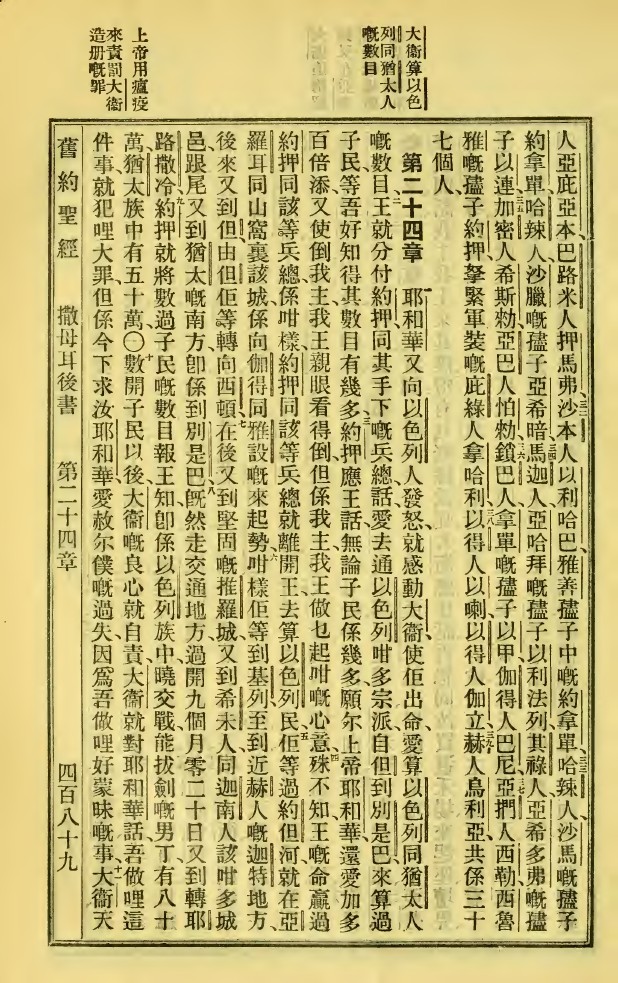 大衞算以色
列同猶太人
嘅數目
上帝用瘟疫
來責罰大衞
造册嘅罪
人亞庇亞本巴路米人押馬弗沙本人以利哈巴雅善𡥧子中嘅約拿單哈辣人沙馬嘅𡥧子
約拿單哈辣人沙臘嘅𡥧子亞希暗馬迦人亞哈拜嘅𡥧子以利法列其祿人亞希多弗嘅𡥧
子以連加密人希斯勑亞巴人怕勑鎖巴人拿單嘅𡥧子以甲伽得人巴尼亞捫人西勒西魯
雅嘅𡥧子約押拏緊軍裝嘅庇綠人拿哈利以得人以喇以得人伽立赫人烏利亞共係三十
七個人
第二十四章 耶和華又向以色列人發怒就感動大衞使佢出命愛算以色列同猶太人
嘅數目二王就分付約押同其手下嘅兵總話愛去通以色列咁多宗派自但到別是巴來算過
子民等吾好知得其數目有幾多三約押應王話無論子民係幾多願尔上帝耶和華還愛加多
百倍添又使倒我主我王親眼看得倒但係我主我王做乜起咁嘅心意四殊不知王嘅命贏過
約押同該等兵總係咁樣約押同該等兵總就離開王去算以色列民五佢等過約但河就在亞
羅耳同山窩裏該城係向伽得同雅設嘅來起勢六咁樣佢等到基列至到近赫人嘅迦特地方
後來又到但由但佢等轉向西頓七在後又到堅固嘅推羅城又到希未人同迦南人該咁多城
邑跟尾又到猶太嘅南方卽係到別是巴八旣然走交通地方過開九個月零二十日又到轉耶
路撒冷九約押就將數過子民嘅數目報王知卽係以色列族中曉交戰能拔劍嘅男丁有八十
萬猶太族中有五十萬〇十數開子民以後大衞嘅良心就自責大衞就對耶和華話吾做哩這
件事就犯哩大罪但係今下求汝耶和華愛赦尔僕嘅過失因爲吾做哩好蒙昧嘅事十一大衞天
舊約聖經 撒母耳後書 第二十四章 四百八十九